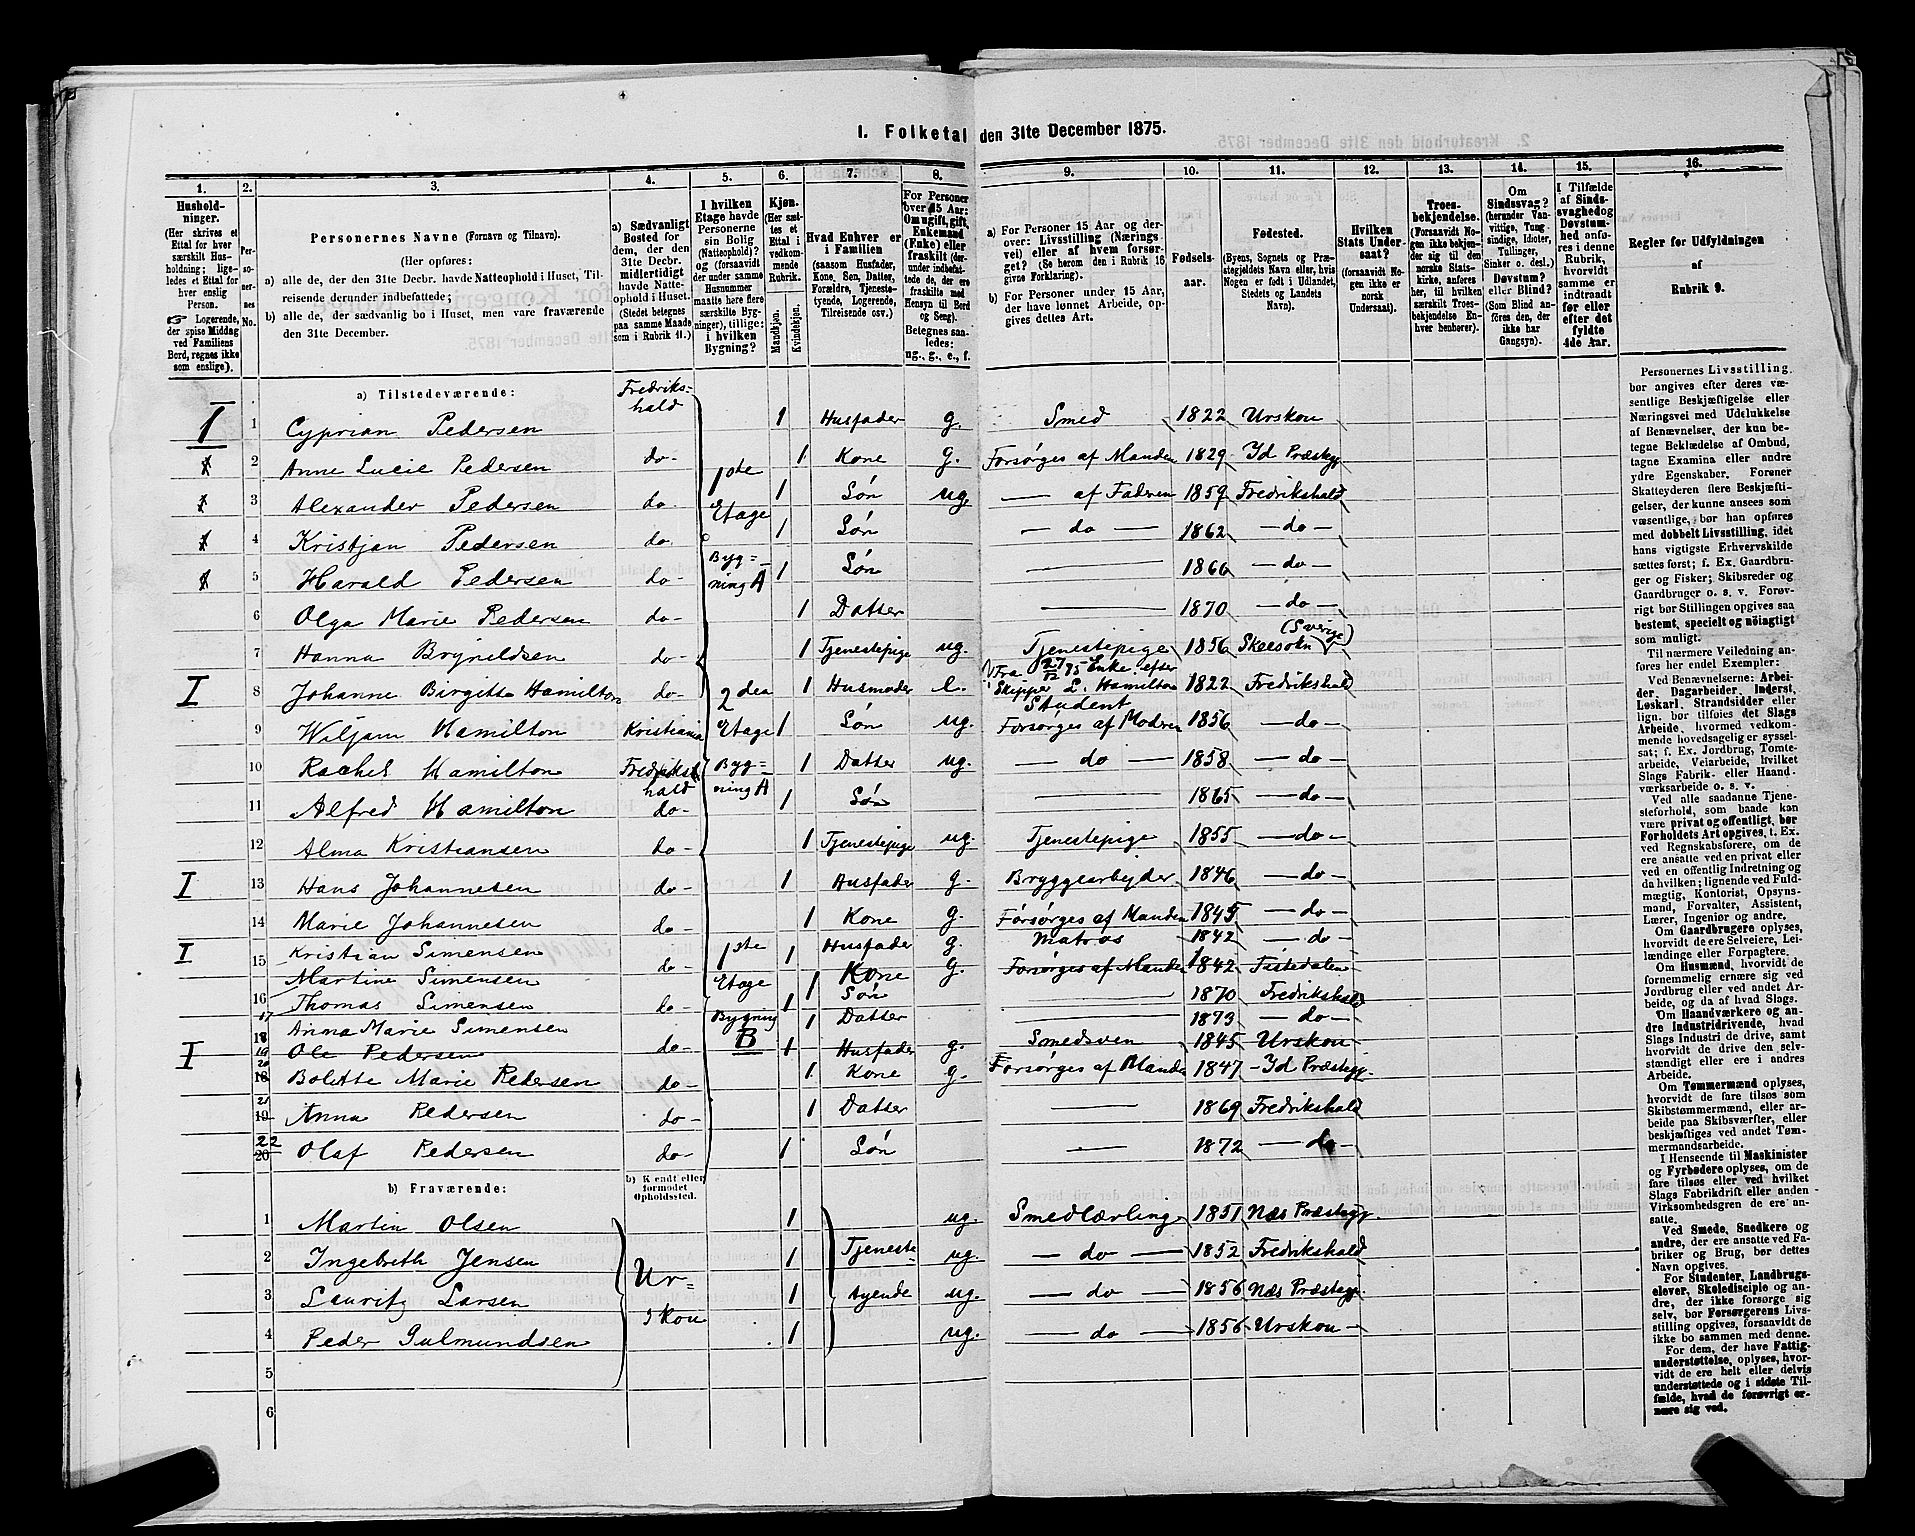 I. Folketal den 31te December 1875.
1.
2.
3.
4.
5.
6.
7.
8.
9.
10.
11.
12.
13.
14.
15.
16.
Hushold-
ninger.
(Her skrives et
Ettal for hver
særskilt Hus-
holdning; lige-
ledes et Ettal for
hver enslig
Person.
☞ Logerende,
der spise Middag
ved Familiens
Bord, regnes ikke
som enslige).
Per-
so-
ner-
nes
No.
Personernes Navne (Fornavn og Tilnavn).
(Her opføres:
a) alle de, der den 31te Decbr. havde Natteophold i Huset, Til-
reisende derunder indbefattede;
b) alle de, der sædvanlig bo i Huset, men vare fraværende
den 31te December.
a) Sædvanligt
Bosted for
dem, der den
31te Decbr.
midlertidigt
havde Natte-
ophold i Huset.
(Stedet betegnes
paa samme Maade
som i Rubrik 11.)
I hvilken
Etage havde
Personerne
sin Bolig
(Natteophold)?
og (forsaavidt
der under samme
Husnummer
maatte høre flere
særskilte Byg-
ninger), tillige:
i hvilken
Bygning?
Kjøn.
(Her sæt-
tes et
Ettal i
vedkom-
mende
Rubrik.)
Mandkjøn.
Kvindekjøn.
Hvad Enhver er
i Familien
(saasom Husfader,
Kone, Søn, Datter,
Forældre, Tjeneste-
tyende, Logerende,
Tilreisende osv.)
For Personer
over 15 Aar:
Om ugift, gift,
Enkemand
(Enke) eller
fraskilt (der-
under indbefat-
tede de, der ere
fraskilte med
Hensyn til Bord
og Seng).
Betegnes saa-
ledes:
ug., g., e., f.
a) For Personer 15 Aar og der-
over: Livsstilling (Nærings-
vei) eller af hvem forsør-
get? (Se herom den i Rubrik 16
givne Forklaring).
b) For Personer under 15 Aar,
der have lønnet Arbeide, op-
gives dettes Art.
Fødsels-
aar.
Fødested.
(Byens, Sognets og Præ-
stegjeldets Navn eller, hvis
Nogen er født i Udlandet,
Stedets og Landets
Navn).
Hvilken
Stats Under-
saat?
(forsaavidt No-
gen ikke er
norsk
Undersaat).
Troes-
bekjendelse.
(Forsaavidt No-
gen ikke bekjen-
der sig til den
norske Stats-
kirke, anføres
her, til hvilken
særskilt Troes-
bekjendelse En-
hver henhører).
Om
Sindssvag?
(herunder Van-
vittige, Tung-
sindige, Idioter,
Tullinger,
Sinker o. desl.)
Døvstum?
eller Blind?
(Som Blind an-
føres den, der
ikke har
Gangsyn).
I Tilfælde
af Sinds-
svaghed og
Døvstum-
hed anfø-
res i denne
Rubrik,
hvorvidt
samme er
indtraadt
før eller
efter det
fyldte
4de Aar.
Regler for Udfyldningen
af
Rubrik 9.
a) Tilstedeværende:
1 1 Cyprian Pedersen Fredriks-hald 1 Husfader g. Smed 1822 Urskou
2 Anne Lucie Pedersen do- 1ste 1 Kone g. Forsørges af Manden 1829 Id Præstegj.
3 Alexander Pedersen do- Etage 1 Søn ug. — af Faderen 1859 Fredrikshald
4 Kristjan Pedersen do- 1 Søn — do — 1862 — do —
5 Harald Pedersen do- Byg=ning A 1 Søn — 1866 — do —
6 Olga Marie Pedersen do- 1 Datter — 1870 — do —
7 Hanna Brynildsen do- 1 Tjenestepige ug. Tjenestepige 1856 Skeesogn (Sverige)
I 8 Johanne Birgitte Hamilton do- 2den 1 Husmoder e. Enke efter Skipper L. Hamilton 1822 Fredrikshald
9 Wiljam Hamilton Kristiania Etage 1 Søn ug. Student Forsørges af Modren 1856 — do —
10 Rachel Hamilton Fredrikshald Byg=ning A 1 Datter ug. — do — 1858 — do —
11 Alfred Hamilton do- 1 Søn — 1865 — do —
12 Alma Kristiansen do- 1 Tjenestepige ug. Tjenestepige 1855 — do —
I 13 Hans Johannesen do- 1 Husfader g. Bryggearbejder 1846 — do —
14 Marie Johannesen do- 1 Kone g. Forsørges af Manden 1845 — do —
I 15 Kristian Simensen do- 1ste 1 Husfader g. Matros 1842 — do —
16 Martine Simensen Etage 1 Kone g. Forsørges af Manden 1842 Tistedalen
17 Thomas Simensen do- 1 Søn — 1870 Fredrikshald
18 Anna Marie Simensen Bygning B 1 Datter — 1873 — do —
I 19 Ole Pedersen do- 1 Husfader g. Smedsven 1845 Urskou
20 Bolette Marie Pedersen do- 1 Kone g. Forsørges af Manden 1847 Id Præstegj.
21 Anna Pedersen do- 1 Datter — 1869 Fredrikshald
22 Olaf Pedersen do- 1 Søn — 1872 — do —
b) Fraværende:
b) Kjendt eller
formodet
Opholdssted.
1 Martin Olsen Ur=skou 1 Tjeneste=tyende ug. Smedlærling 1851 Næs Præstegj.
2 Ingebreth Jensen 1 ug. — do — 1852 Fredrikshald
3 Lauritz Larsen 1 ug. — do — 1856 Næs Præstegj.
4 Peder Gulmundsen 1 ug. — do — 1856 Urskou
5
6
Personernes Livsstilling
bør angives efter deres væ-
sentlige Beskjæftigelse eller
Næringsvei med Udelukkelse
af Benævnelser, der kun be-
tegne Beklædelse af Ombud,
tagne Examina eller andre
ydre Egenskaber. Forener
Skatteyderen flere Beskjæfti-
gelser, der kunne ansees som
væsentlige, bør han opføres
med dobbelt Livsstilling, idet
hans vigtigste Erhvervskilde
sættes først; f. Ex. Gaardbru-
ger og Fisker; Skibsreder og
Gaardbruger o. s. v. Forøv-
rigt bør Stillingen opgives saa
bestemt, specielt og nøiagtigt
som muligt.
Til nærmere Veiledning an-
føres her endel Exempler:
Ved Benævnelserne: Arbei-
der, Dagarbeider, Inderst,
Løskarl, Strandsidder eller
lign. bør tilføies det Slags
Arbeide, hvormed vedkom-
mende hovedsagelig er syssel-
sat; f. Ex. Jordbrug, Tomte-
arbeide, Veiarbeide, hvilket
Slags Fabrik- eller Haand-
værksarbeide o. s. v.
Ved alle saadanne Tjene-
steforhold, som baade kan
være privat og offentligt, bør
Forholdets Art opgives, t. Ex.
ved Regnskabsførere, om de
ere ansatte ved en privat eller
ved en offentlig Indretning og
da hvilken; lignende ved Fuld-
mægtig, Kontorist, Opsyns-
mand, Forvalter, Assistent,
Lærer, Ingeniør og andre.
Om Gaardbrugere oplyses,
hvorvidt de ere Selveiere, Lei-
lændinge eller Forpagtere.
Om Husmænd, hvorvidt de
fornemmelig ernære sig ved
Jordbrug eller ved andet Ar-
beide, og da af hvad Slags.
Om Haandværkere og an-
dre Industridrivende, hvad
Slags Industri de drive, samt
hvorvidt de drive den selv-
stændigt eller ere i andres
Arbeide.
Om Tømmermænd oplyses,
hvorvidt de fare tilsøs som
Skibstømmermænd, eller ar-
beide paa Skibsværfter, eller
beskjæftiges ved andet Tøm-
mermandsarbeide.
I Henseende til Maskinister
og Fyrbødere oplyses, om de
fare tilsøs eller ved hvilket
Slags Fabrikdrift eller anden
Virksomhedsgren de ere an-
satte.
Ved Smede, Snedkere og
andre, der ere ansatte ved Fa-
briker og Brug, bør dettes
Navn opgives.
For Studenter, Landbrugs-
elever, Skoledisciple og an-
dre, der ikke forsørge sig
selv, bør Forsørgerens Livs-
stilling opgives, forsaavidt de
ikke bo sammen med denne.
For dem, der have Fattig-
understøttelse, oplyses, hvor-
vidt de ere helt eller delvis
understøttede og i sidste Til-
fælde, hvad de forøvrigt er-
nære sig ved.